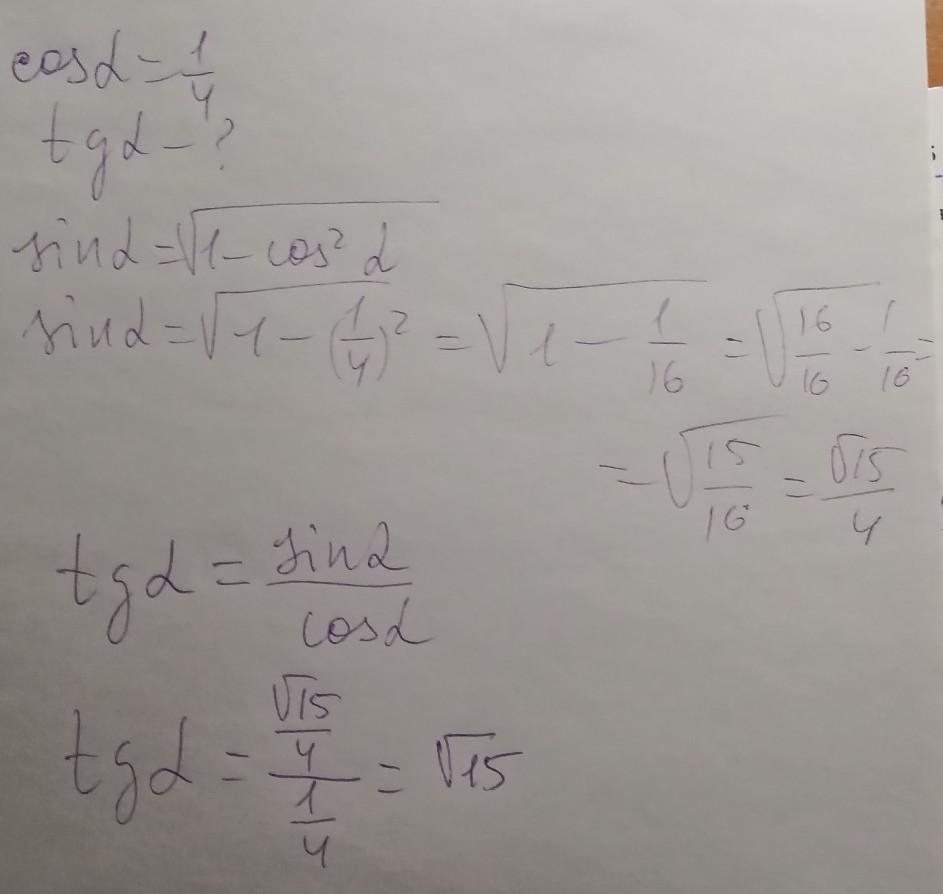 cosα = 1/4
tgα - ?
sinα = √(1 - cos² α)
sinα = √(1 - (1/4)²) = √(1 - 1/16) = √(16/16 - 1/16) =
= √(15/16) = √15/4
tgα = sinα/cosα
tgα = (√15/4)/(1/4) = √15